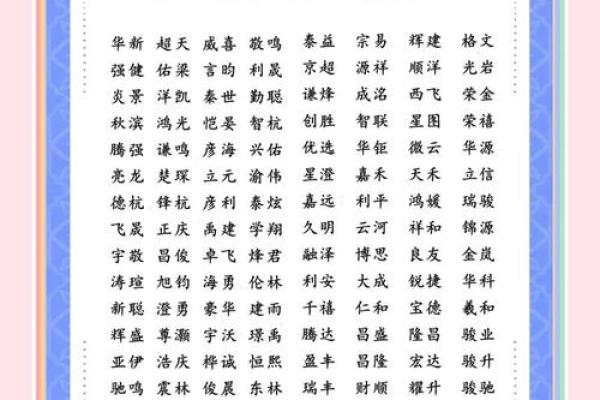 华新 超天 威喜 敬鸣 泰益 宗易 辉建 格文
强健 佑梁 言昀 利晟 京超 源祥 顺洋 光岩
炎景 洋凯 秦世 勤聪 谦烽 成洺 西飞 荣金
秋滨 鸿光 恺晏 智杭 创胜 智联 星图 荣禧
腾强 谦鸣 彦海 兴佑 优选 华钜 微云 华源
亮龙 楚琛 立元 渝伟 星澄 嘉禾 天禾 立信
德杭 锋杭 彦利 泰炫 嘉远 利平 鸿媛 瑞骏
飞晟 正庆 禹建 学翔 久明 云河 祥和 锦源
宇敬 昌俊 卓飞 烽君 融泽 博思 良友 金岚
涛瑄 旭钧 海勇 伦林 利安 大成 锐捷 华科
新聪 澄勇 豪华 建雨 千禧 仁和 宝德 羲和
辉盛 尊灏 宇沃 璟禹 腾达 昌盛 隆昌 骏业
亚伊 浩庆 桦诚 恒熙 盈丰 昌隆 宏达 骏升
驰鸣 震林 俊晨 东林 瑞丰 财顺 耀升 骏驰